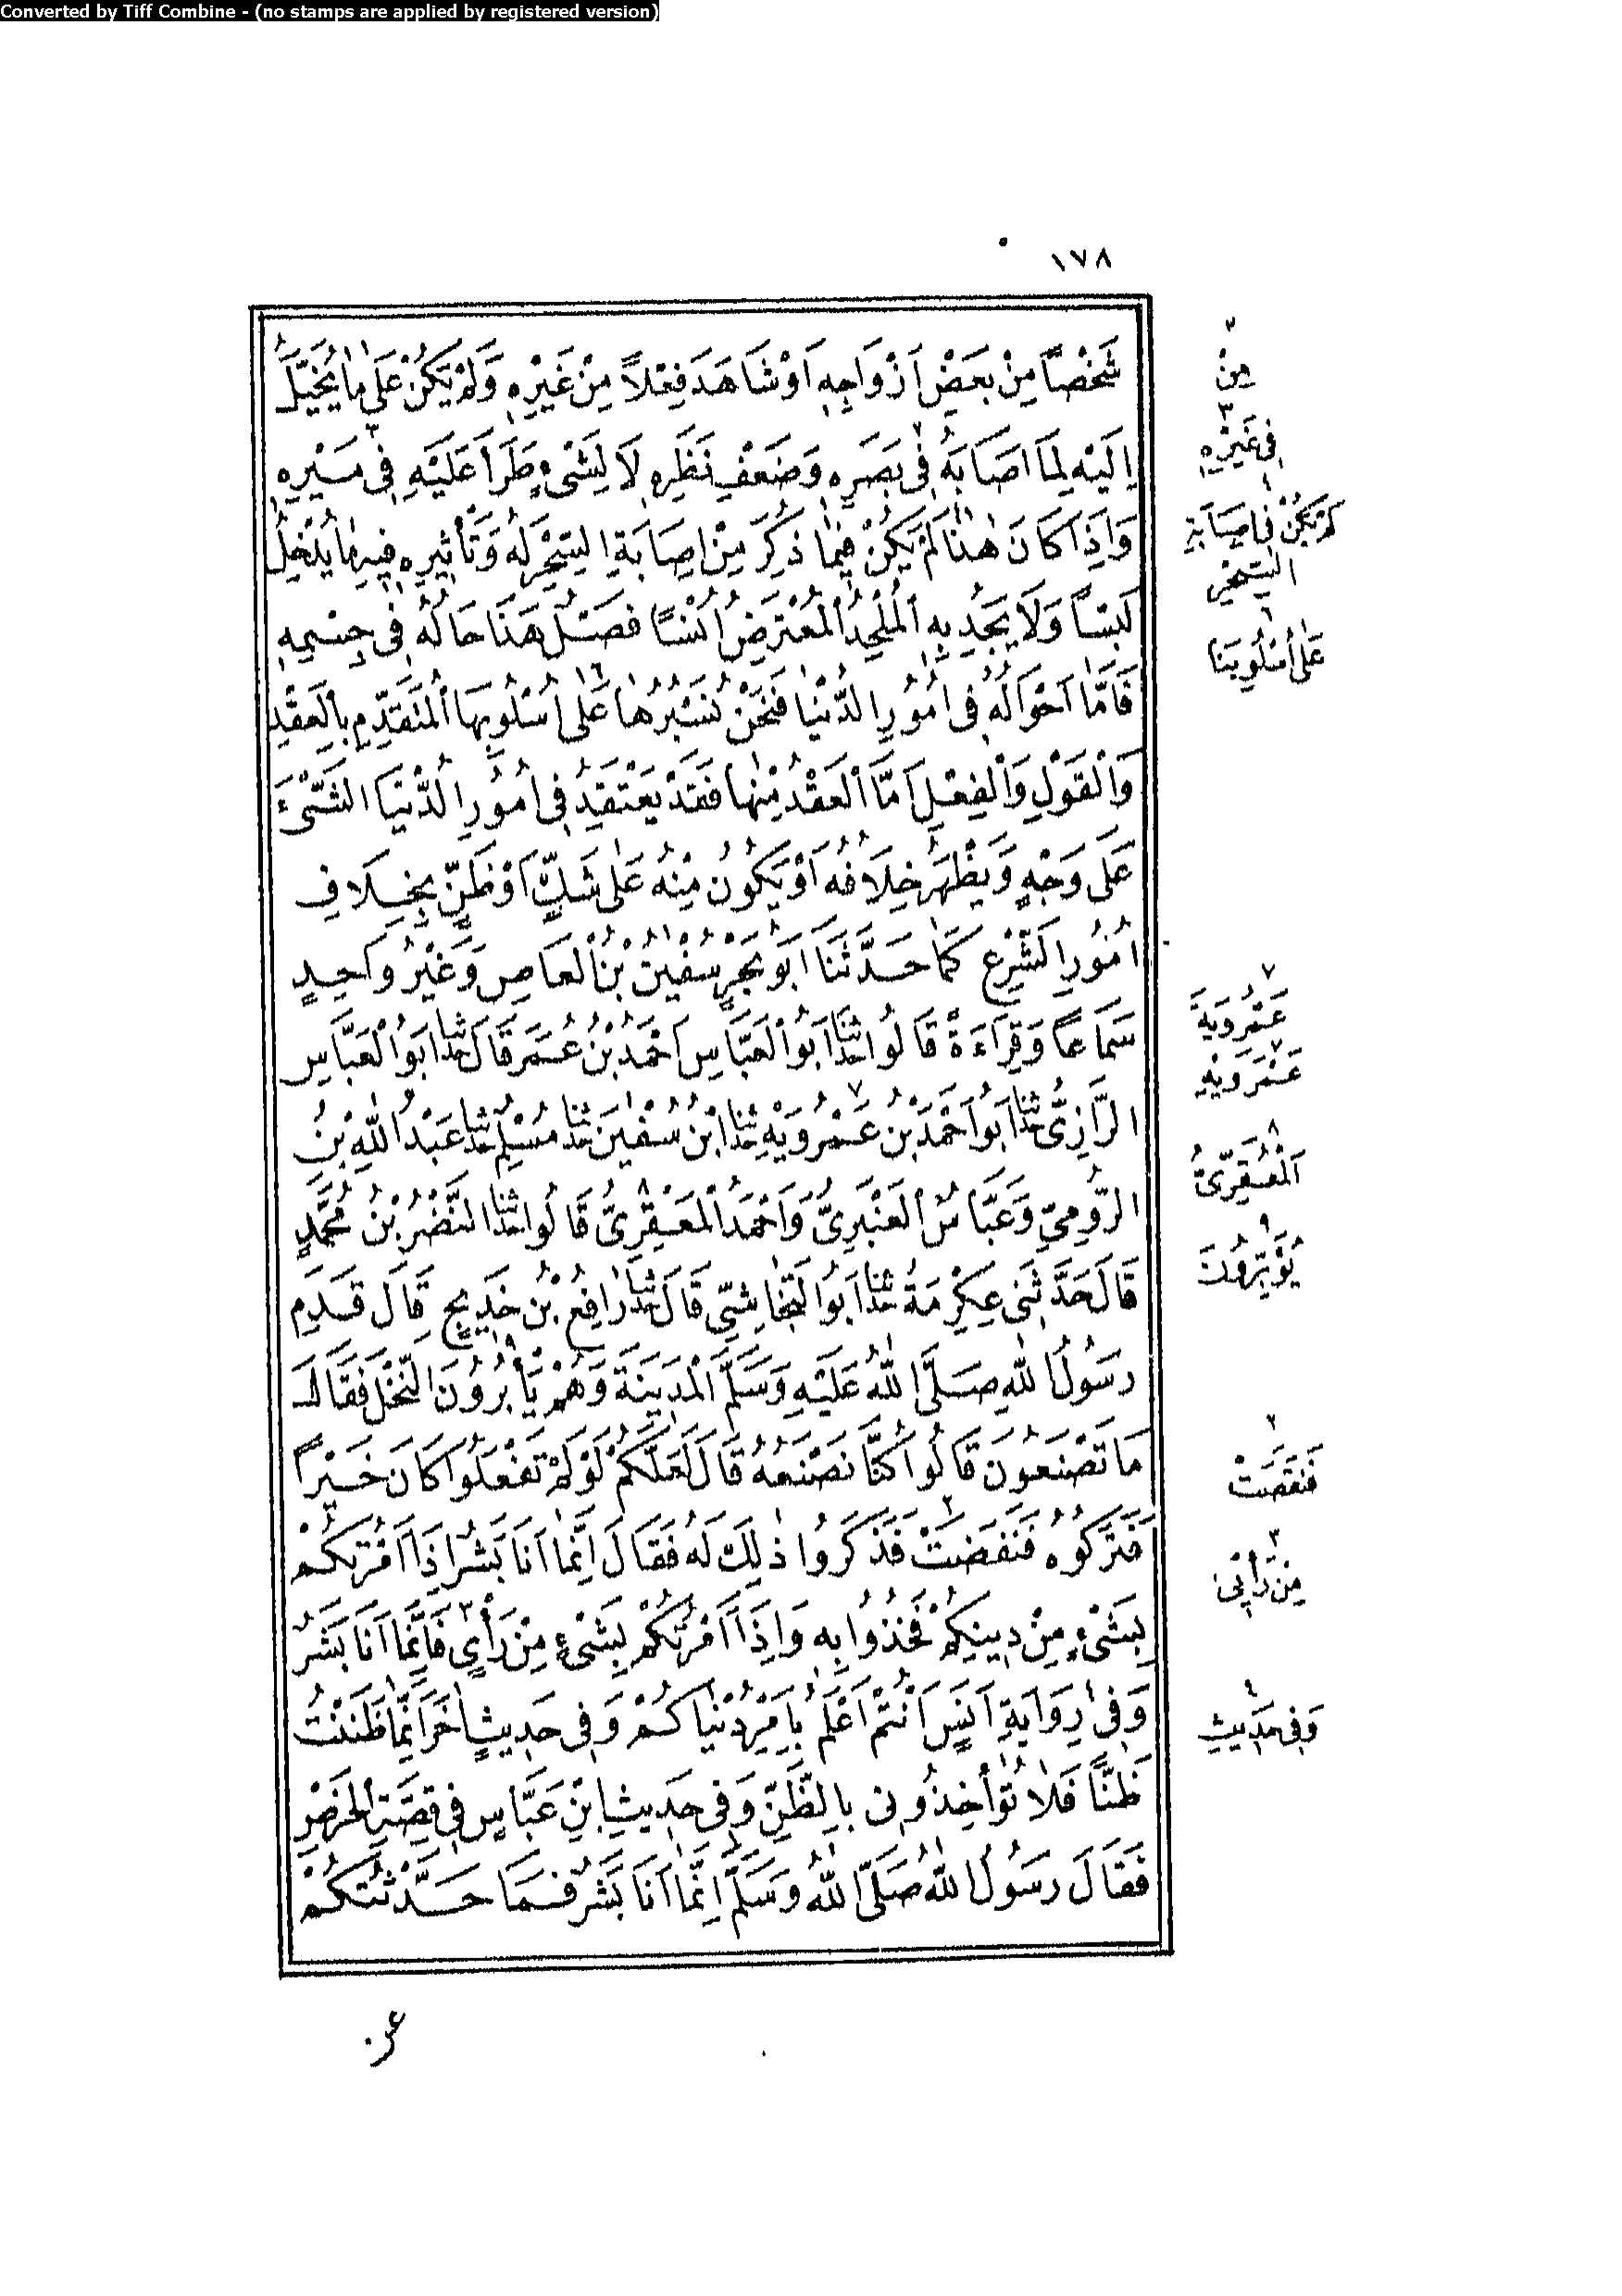 Converted by Tiff Combine - (no stamps are applied by registered version)
١٧٨
شَخْصًا مِنْ بَعْضِ اَزْوَاجِهِ اَوْشَاهَدَ فِعْلاً مِنْ غَيْرِهِ وَلَمْ يَكُنْ عَلَى مَا يُخَيَّلُ
اِلَيْهِ لِمَا اَصَابَهُ فِى بَصَرِهِ وَضَعْفِ نَظَرِهِ لَا لِشَىْءٍ طَرَأَ عَلَيْهِ فِى مَيْرِهِ
وَاِذَا كَانَ هٰذَا لَمْ يَكُنْ فِيمَا ذُكِرَ مِنْ اِصَابَةِ السِّحْرِ لَهُ وَتَأْثِيرِهِ فِيهِ مَا يُدْخِلُ
لَبْسًا وَلَا يَجِدُ بِهِ الْمُلْحِدُ الْمُعْتَرِضُ اُنْسًا فَصْلٌ هَذَا حَالُهُ فِى جِسْمِهِ
فَاَمَّا اَحْوَالُهُ فِى اُمُورِ الدُّنْيَا فَنَحْنُ نُسْبُرُهَا عَلَى اُسْلُوبِهَا الْمُتَقَدِّمِ بِالْعَقْدِ
وَالْقَوْلِ وَالْفِعْلِ اَمَّا الْعَقْدُ مِنْهَا فَقَدْ يَعْتَقِدُ فِى اُمُورِ الدُّنْيَا الشَّىْءَ
عَلَى وَجْهٍ وَيَظْهَرُ خِلَافُهُ اَوْ يَكُونُ مِنْهُ عَلَى شَكٍّ اَوْ ظَنٍّ بِخِلَافِ
اُمُورِ الشَّرْعِ كَمَا حَدَّثَنَا اَبُو بَحْرٍ سُفْيٰنُ بْنُ الْعَاصِ وَغَيْرُ وَاحِدٍ
سَمَاعًا وَقِرَاءَةً قَالُوا حَدَّثَنَا اَبُو الْعَبَّاسِ اَحْمَدُ بْنُ عُمَرَ قَالَ حَدَّثَنَا اَبُو الْعَبَّاسِ
الرَّازِىُّ حَدَّثَنَا اَبُو اَحْمَدَ بْنُ عَمْرُوَيْهِ حَدَّثَنَا ابْنُ سُفْيٰنَ حَدَّثَنَا مُسْلِمٌ حَدَّثَنَا عَبْدُ اللّٰهِ بْنُ
الرُّومِىِّ وَعَبَّاسُ الْعَنْبَرِىُّ وَاَحْمَدُ الْمَعْقِرِىُّ قَالُوا حَدَّثَنَا النَّضْرُ بْنُ مُحَمَّدٍ
قَالَ حَدَّثَنِى عِكْرِمَةُ حَدَّثَنَا اَبُو النَّجَاشِىِّ قَالَ حَدَّثَنَا رَافِعُ بْنُ خَدِيجٍ قَالَ قَدِمَ
رَسُولُ اللّٰهِ صَلَّى اللّٰهُ عَلَيْهِ وَسَلَّمَ الْمَدِينَةَ وَهُمْ يَأْبُرُونَ النَّخْلَ فَقَالَ
مَا تَصْنَعُونَ قَالُوا كُنَّا نَصْنَعُهُ قَالَ لَعَلَّكُمْ لَوْ لَمْ تَفْعَلُوا كَانَ خَيْرًا
فَتَرَكُوهُ فَنَفَضَتْ فَذَكَرُوا ذٰلِكَ لَهُ فَقَالَ اِنَّمَا اَنَا بَشَرٌ اِذَا اَمَرْتُكُمْ
بِشَىْءٍ مِنْ دِينِكُمْ فَخُذُوا بِهِ وَاِذَا اَمَرْتُكُمْ بِشَىْءٍ مِنْ رَأْىٍ فَاِنَّمَا اَنَا بَشَرٌ
وَفِى رِوَايَةِ اَنَسٍ اَنْتُمْ اَعْلَمُ بِاَمْرِ دُنْيَاكُمْ وَفِى حَدِيثٍ اٰخَرَ اِنَّمَا ظَنَنْتُ
ظَنًّا فَلَا تُؤَاخِذُونِى بِالظَّنِّ وَفِى حَدِيثِ ابْنِ عَبَّاسٍ فِى قِصَّةِ الْخَرْصِ
فَقَالَ رَسُولُ اللّٰهِ صَلَّى اللّٰهُ وَسَلَّمَ اِنَّمَا اَنَا بَشَرٌ فَمَا حَدَّثْتُكُمْ
٢
مِنْ
٣
فِى غَيْرِهِ
١
لَمْ يَكُنْ فِى اِصَابَةِ
السِّحْرِ
٦
عَلَى اُسْلُوبِنَا
٧
عَمْرُوَيَهَ
٧
عَمْرَوَيْهِ
٨
الْمَعْقِرِىُّ
٩
يُؤَبِّرُونَ
٢
فَنَقَصَتْ
٣
مِنْ رَأْيِى
٤
وَفِى حَدِيثِ
عن